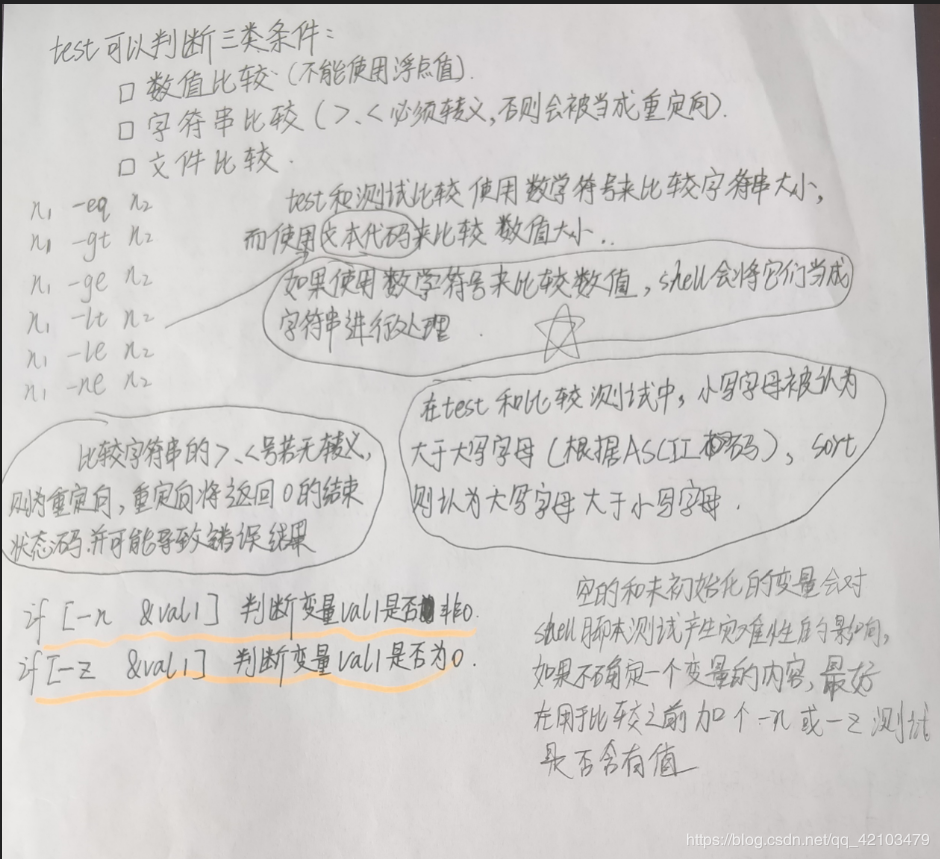 test可以判断三类条件:
□ 数值比较(不能使用浮点值).
□ 字符串比较(>、<必须转义,否则会被当成重定向).
□ 文件比较.
test和测试比较使用数学符号来比较字符串大小,
而使用文本代码来比较数值大小..
n₁ -eq n₂
n₁ -gt n₂
n₁ -ge n₂
n₁ -lt n₂
n₁ -le n₂
n₁ -ne n₂
如果使用数学符号来比较数值,shell会将它们当成
字符串进行处理.
在test和比较测试中,小写字母被认为
大于大写字母(根据ASCII码),sort
则认为大写字母大于小写字母.
比较字符串的>、<号若无转义,
则为重定向,重定向将返回0的结束
状态码.并可能导致错误结果
if [-n &val1] 判断变量val1是否非0.
if [-z &val1] 判断变量val1是否为0.
空的和未初始化的变量会对
shell脚本测试产生灾难性的影响,
如果不确定一个变量的内容,最好
在用于比较之前加个-n或-z测试
是否含有值
https://blog.csdn.net/qq_42103479